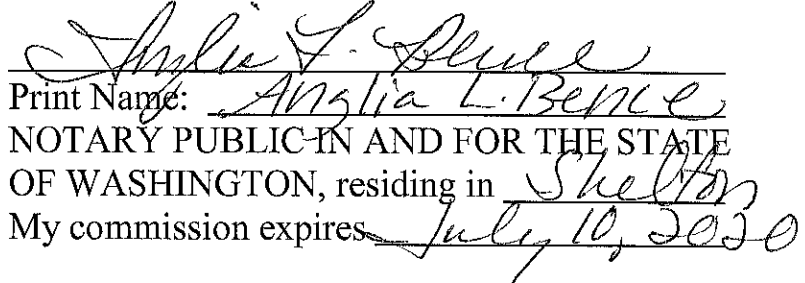 Anglia L. Bence
Print Name: Anglia L. Bence
NOTARY PUBLIC IN AND FOR THE STATE
OF WASHINGTON, residing in Shelton
My commission expires July 10, 2020